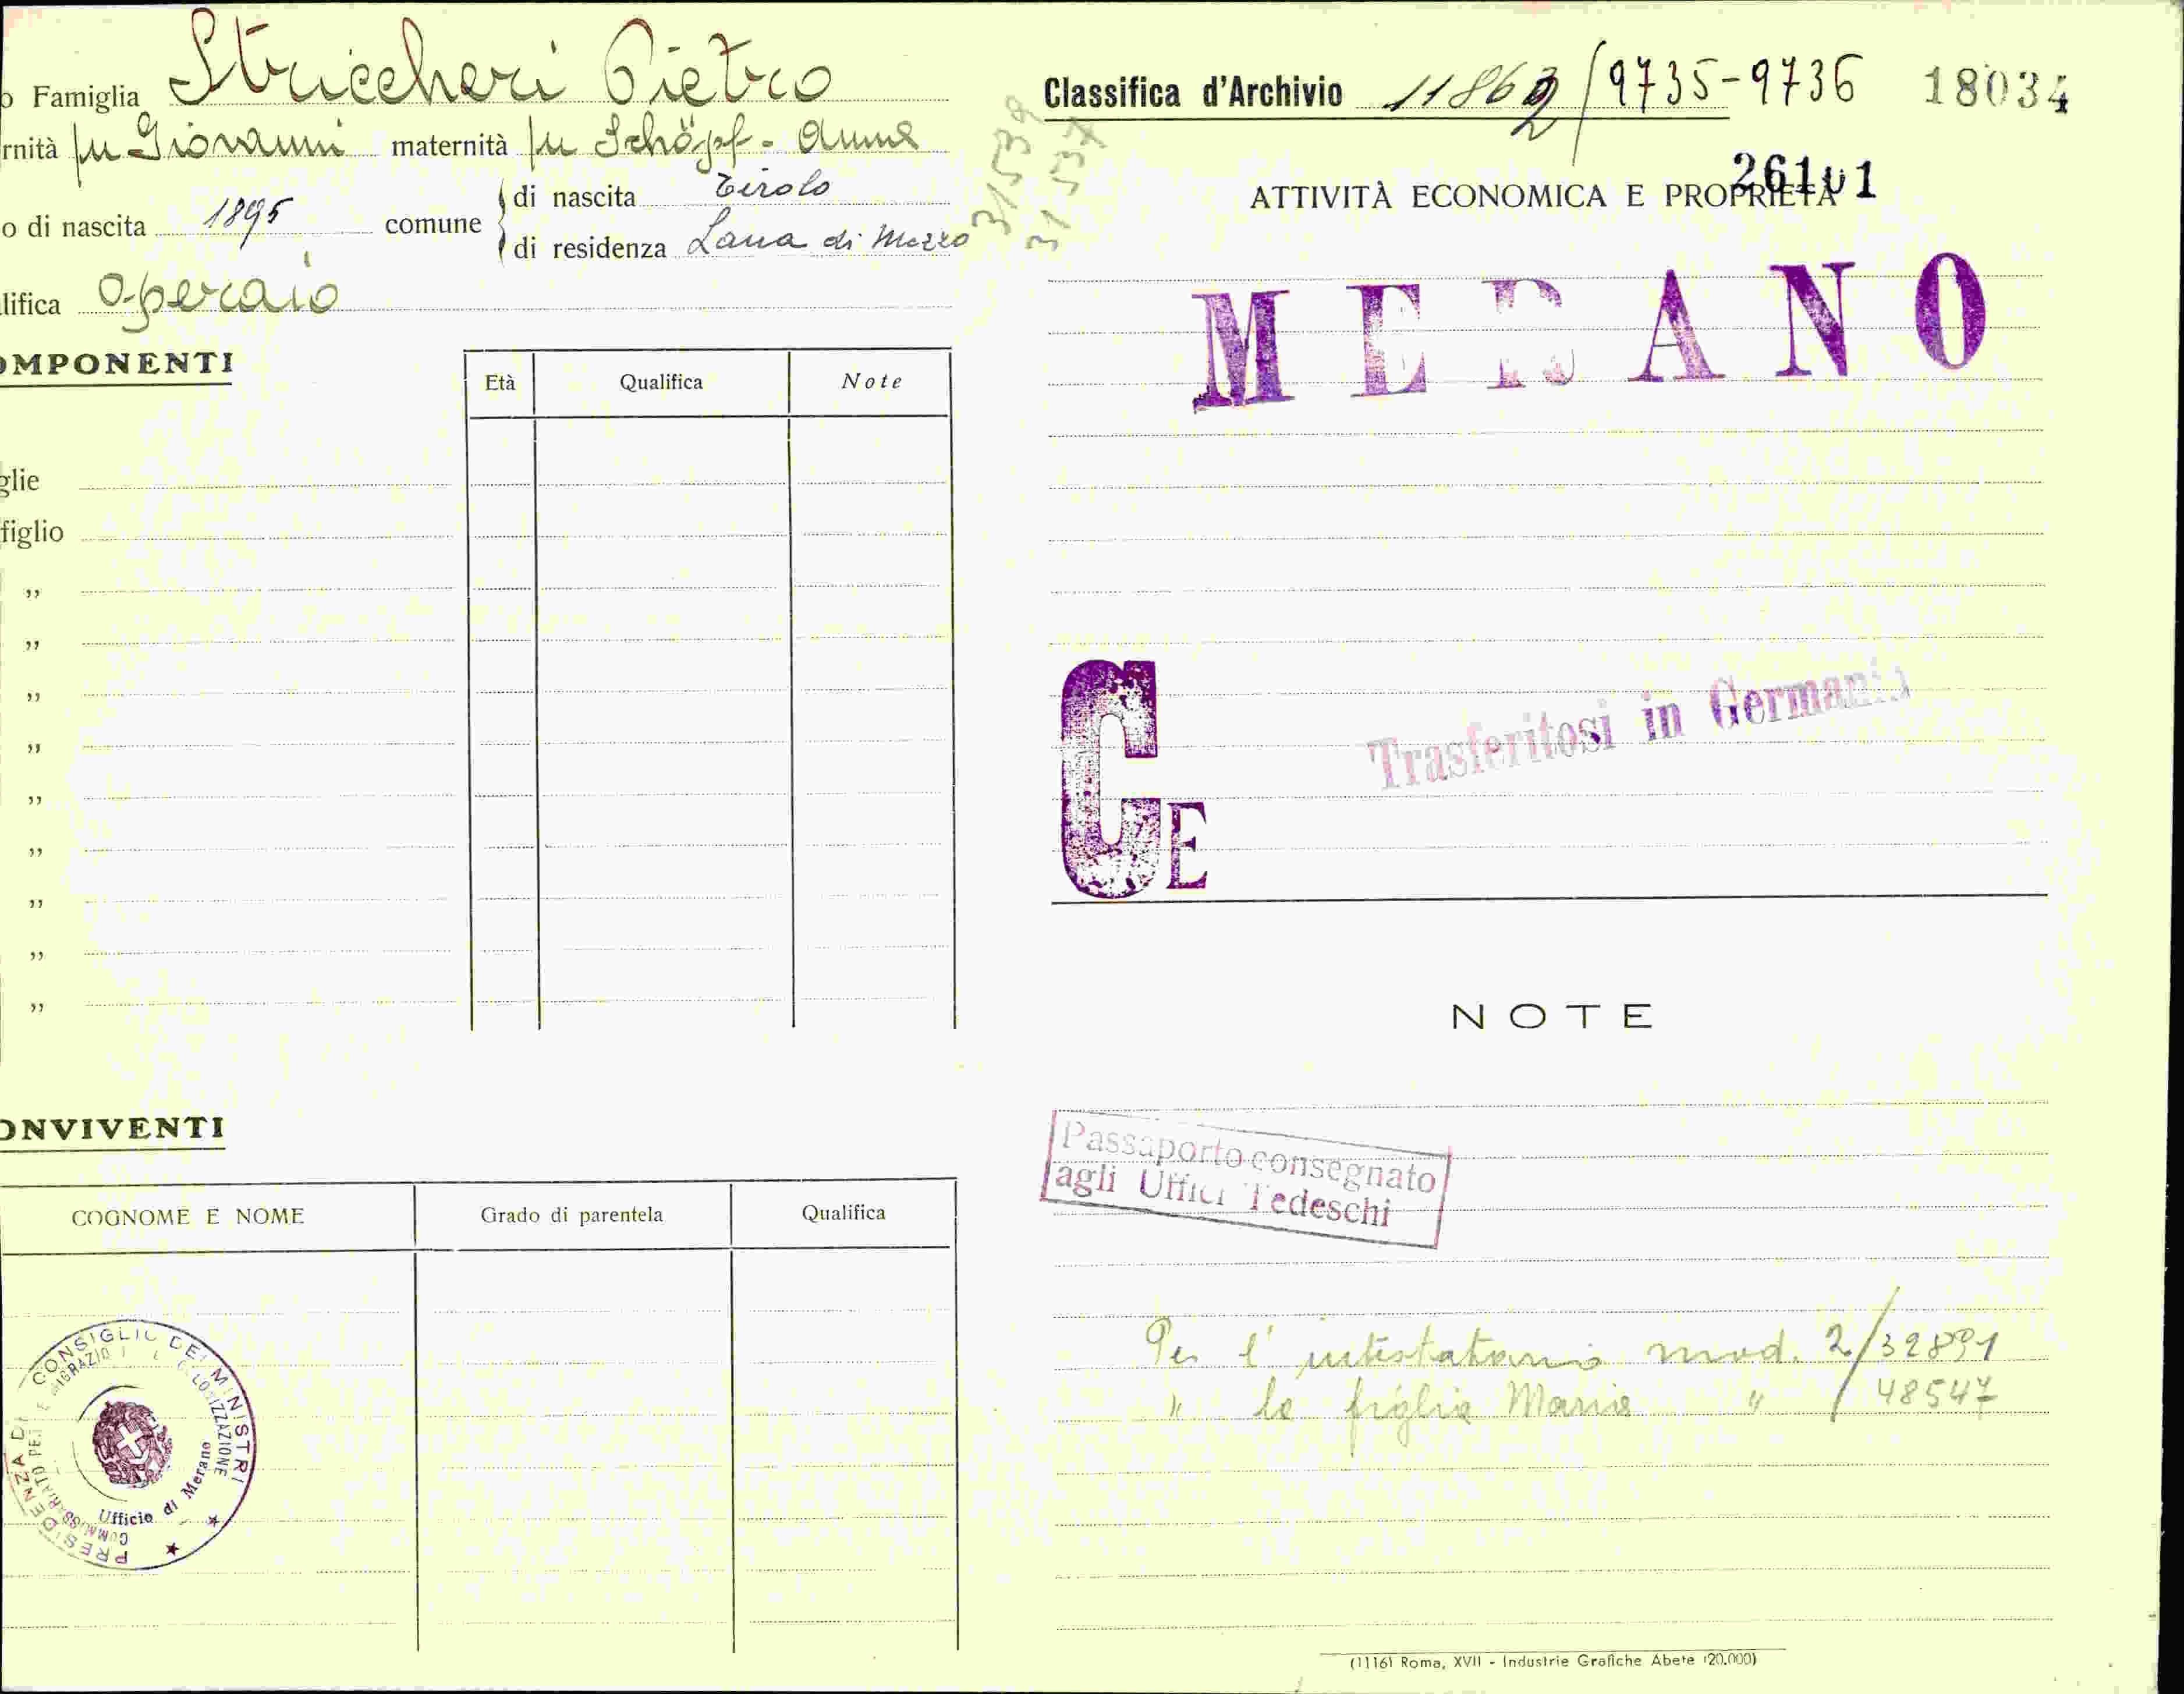 o Famiglia Striccheri Pietro
rnità fu Giovanni maternità fu Schöpf - Anna
o di nascita 1895 comune di nascita Tirolo
di residenza Lana di Mezzo
lifica Operaio
OMPONENTI
Età Qualifica Note
glie
figlio
”
”
”
”
”
”
”
”
”
ONVIVENTI
COGNOME E NOME Grado di parentela Qualifica
PRESIDENZA DEL CONSIGLIO DEI MINISTRI
Ufficio di Merano
31539
31537
Classifica d'Archivio 11862/9735-9736 18034
26101
ATTIVITÀ ECONOMICA E PROPRIETÀ
MERANO
CE
Trasferitosi in Germania
NOTE
Passaporto consegnato
agli Uffici Tedeschi
Per l'intestatario mod. 2/32891
" la figlia Maria " / 48547
(1116) Roma, XVII - Industrie Grafiche Abete (20.000)